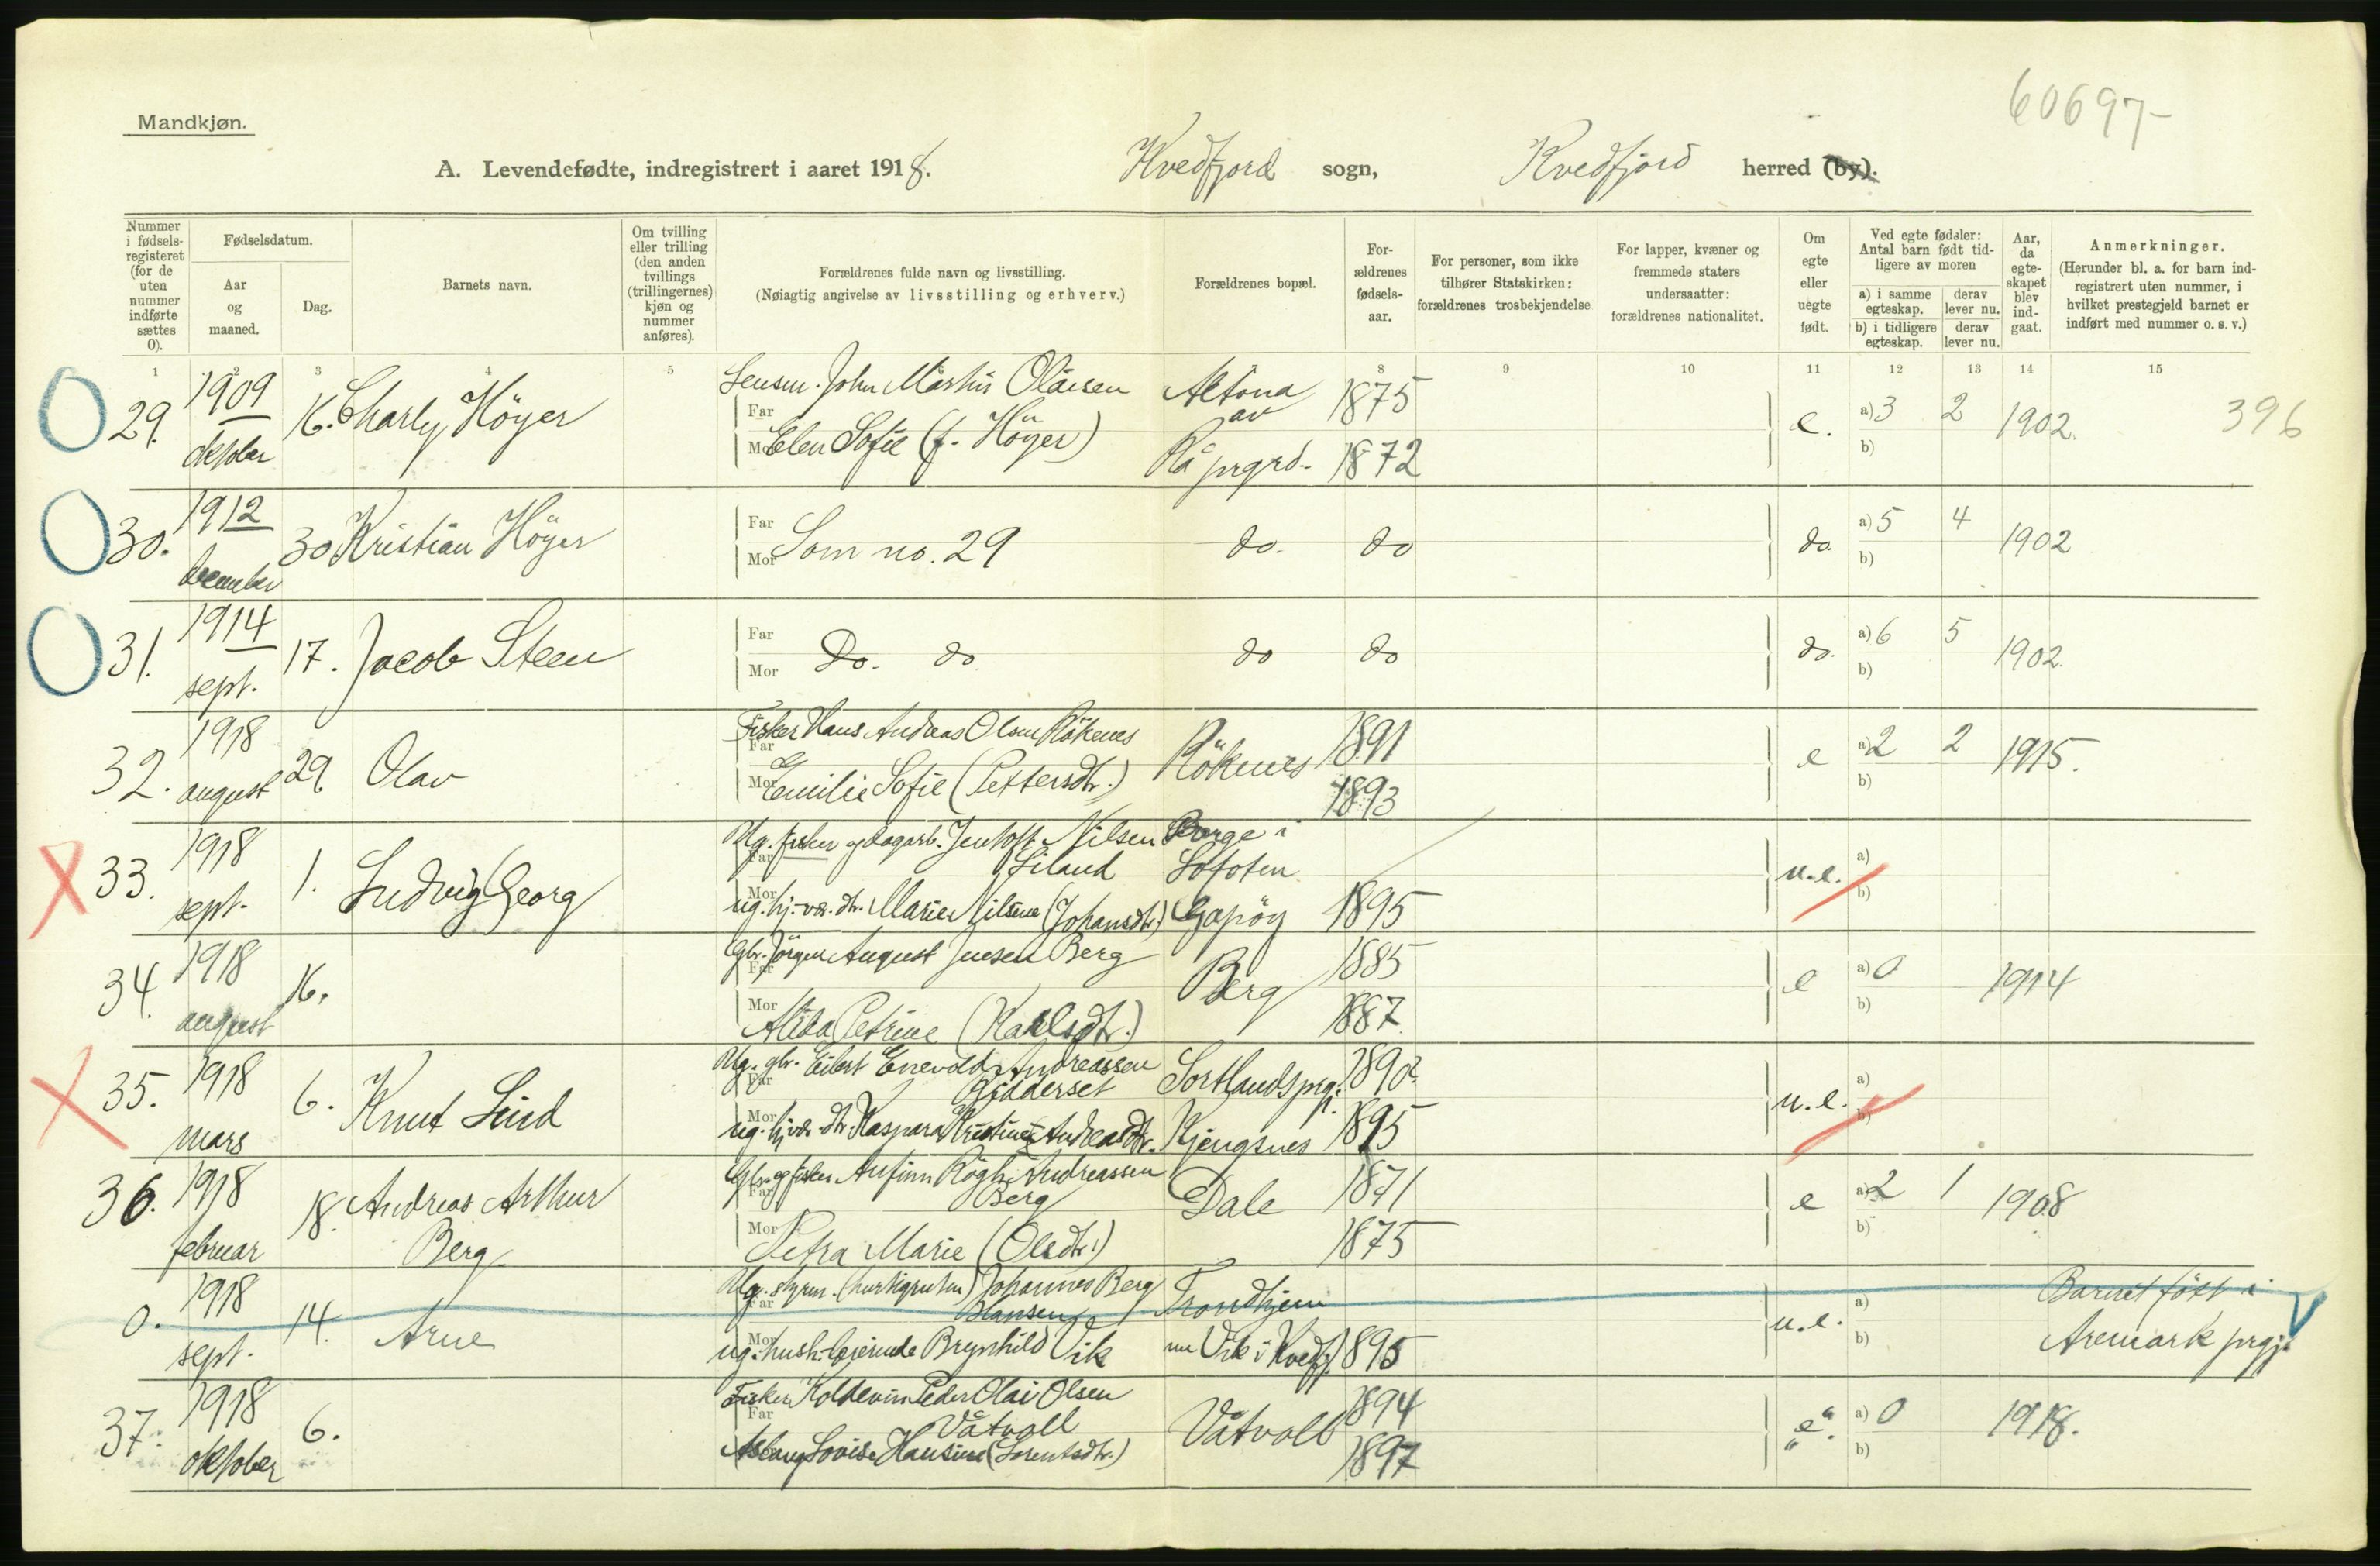 60697-
Mandkjøn.
A. Levendefødte, indregistrert i aaret 1918. Kvedfjord sogn, Kvedfjord herred (by).
Nummer i fødsels-registeret (for de uten nummer indførte sættes 0).
Fødselsdatum.
Aar og maaned.
Dag.
Barnets navn.
Om tvilling eller trilling (den anden tvillings (trillingernes) kjøn og nummer anføres).
Forældrenes fulde navn og livsstilling.
(Nøiagtig angivelse av livsstilling og erhverv.)
Forældrenes bopæl.
For-ældrenes fødsels-aar.
For personer, som ikke tilhører Statskirken: forældrenes trosbekjendelse
For lapper, kvæner og fremmede staters undersaatter: forældrenes nationalitet.
Om egte eller uegte født.
Ved egte fødsler: Antal barn født tid-ligere av moren
a) i samme egteskap.
derav lever nu.
b) i tidligere egteskap.
derav lever nu.
Aar, da egte-skapet blev ind-gaat.
Anmerkninger.
(Herunder bl. a. for barn ind-registrert uten nummer, i hvilket prestegjeld barnet er indført med nummer o. s. v.)
1 2 3 4 5 8 9 10 11 12 13 14 15
29. 1909 oktober 16. Charly Höyer
Lensm. John Martin Olaisen Altona 1875
Far av
Mor Elen Sofie (f. Höyer) Rå prgrd. 1872
e. a) 3 2 1902. 396
b)
30. 1912 december 30 Kristian Höyer
Far
Mor Som no. 29 do. do
do. a) 5 4 1902
b)
31. 1914 sept. 17. Jacob Steen
Far
Mor Do. do do do
do. a) 6 5 1902.
b)
32. 1918 august 29. Olav
Fisker Hans Andreas Olsen Rökenes Rökenes 1891
Far
Mor Emilie Sofie (Pettersdtr.) 1893
e a) 2 2 1915.
b)
33. 1918 sept. 1. Ludvig Georg
Ug. fisker og dagarb. Jentoft Nilsen Borge i
Far Liland Lofoten
Mor ug. hj. vær. dtr. Marie Nilsine (Johansdtr.) Gapöy 1895
u.e. a)
b)
34. 1918 august 16.
Gbr. Jörgen August Jensen Berg Berg 1885
Far
Mor
Alida Petrine (Karlsdtr.) 1887.
e a) 0 1914
b)
35. 1918 mars 6. Knut Lind
Ug. gbr. Eilert Enevold Andreassen Sortlands prgj. 1890?
Far
Mor ug. hj. vær. dtr. Kaspara Kristine Andreasdtr. Kjengsnes 1895
u.e. a)
b)
36. 1918 februar 18. Andreas Arthur Berg
Gbr. og fisker Anfinn Rögh Andreassen Dale 1871
Far Berg
Mor Petra Marie (Olsdtr.) 1875
e a) 2 1 1908
b)
0. 1918 sept. 14. Arne
Ug. styrm. (hurtigruten) Johannes Berg Trondhjem
Far Hansen
Mor ug. hush. Brynhild Vik nu Vik i Kvedfj. 1895
u.e. a)
b)
Barnet födt i
Aremark prgj.
37. 1918 oktober 6.
Fisker Koldevin Peder Olai Olsen Våtvoll 1894
Far Våtvoll
Aslaug Lovise Hansine (Lorentsdtr.) 1897
"e". a) 0 1918.
b)